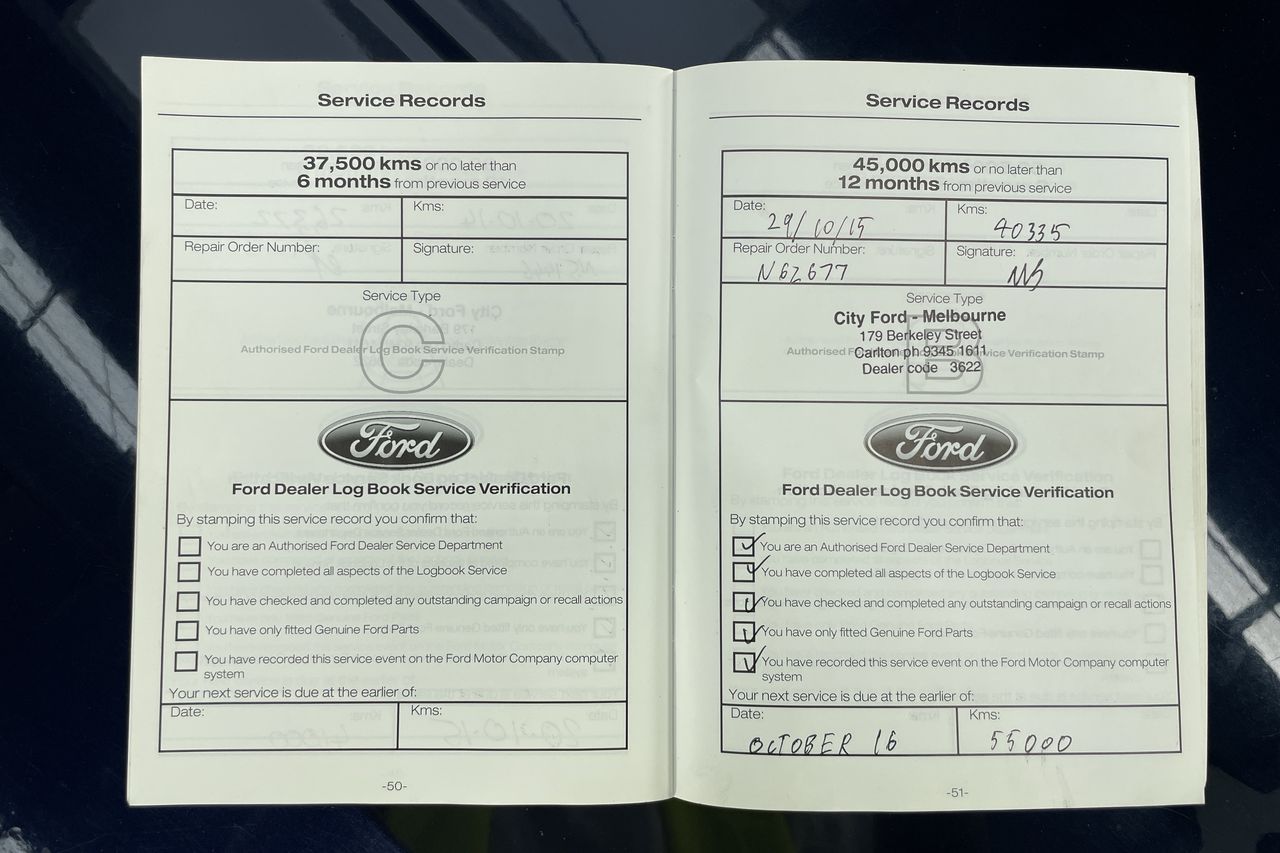 Service Records
37,500 kms or no later than
6 months from previous service
Date:
Kms:
Repair Order Number:
Signature:
Service Type
C
Authorised Ford Dealer Log Book Service Verification Stamp
Ford
Ford Dealer Log Book Service Verification
By stamping this service record you confirm that:
You are an Authorised Ford Dealer Service Department
You have completed all aspects of the Logbook Service
You have checked and completed any outstanding campaign or recall actions
You have only fitted Genuine Ford Parts
You have recorded this service event on the Ford Motor Company computer
system
Your next service is due at the earlier of:
Date:
Kms:
-50-
Service Records
45,000 kms or no later than
12 months from previous service
Date:
29/10/15
Kms:
40335
Repair Order Number:
N62677
Signature:
Service Type
City Ford - Melbourne
179 Berkeley Street
Carlton ph 9345 1611
Dealer code 3622
B
Authorised F ice Verification Stamp
Ford
Ford Dealer Log Book Service Verification
By stamping this service record you confirm that:
You are an Authorised Ford Dealer Service Department
You have completed all aspects of the Logbook Service
You have checked and completed any outstanding campaign or recall actions
You have only fitted Genuine Ford Parts
You have recorded this service event on the Ford Motor Company computer
system
Your next service is due at the earlier of:
Date:
OCTOBER 16
Kms:
55000
-51-